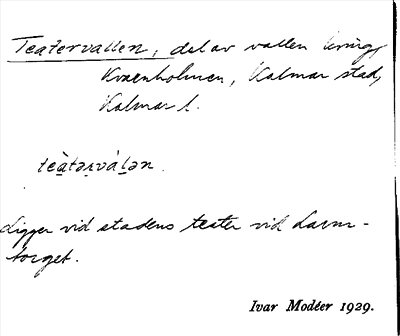 Teatervallen, del av vallen kring
Kvarnholmen, Kalmar stad,
Kalmar l.
teàtərvàlən.
Ligger vid stadens teater vid Larm-
torget.
Ivar Modéer 1929.